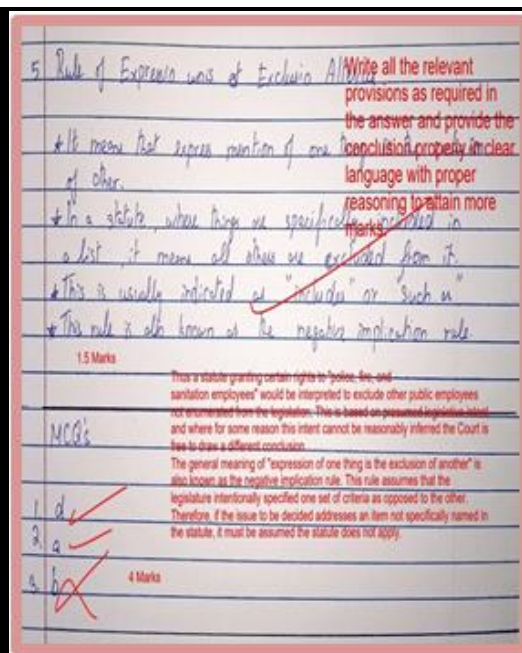 5 Rule of Expresso unis et Exclusio Al
Write all the relevant
provisions as required in
the answer and provide the
conclusion properly in clear
language with proper
reasoning to attain more
marks.
* It means that express mention of one
of other.
* In a statute, where things are specifically included in
a list, it means all others are excluded from it.
* This is usually indicated as "includes" or "such as"
* This rule is also known as the negative implication rule.
1.5 Marks
Thus a statute granting certain rights to "police, fire, and
sanitation employees" would be interpreted to exclude other public employees
not enumerated from the legislation. This is based on presumed legislative intent
and where for some reason this intent cannot be reasonably inferred the Court is
free to draw a different conclusion.
The general meaning of "expression of one thing is the exclusion of another" is
also known as the negative implication rule. This rule assumes that the
legislature intentionally specified one set of criteria as opposed to the other.
Therefore, if the issue to be decided addresses an item not specifically named in
the statute, it must be assumed the statute does not apply.
MCQ's
1. d
2. a
3. b
4 Marks